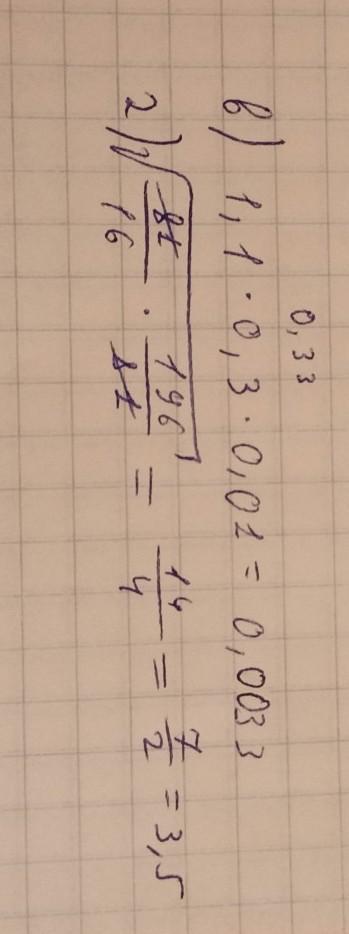 0,33
в) 1,1 · 0,3 · 0,01 = 0,0033
г) √(81/16 · 196/81) = 14/4 = 7/2 = 3,5